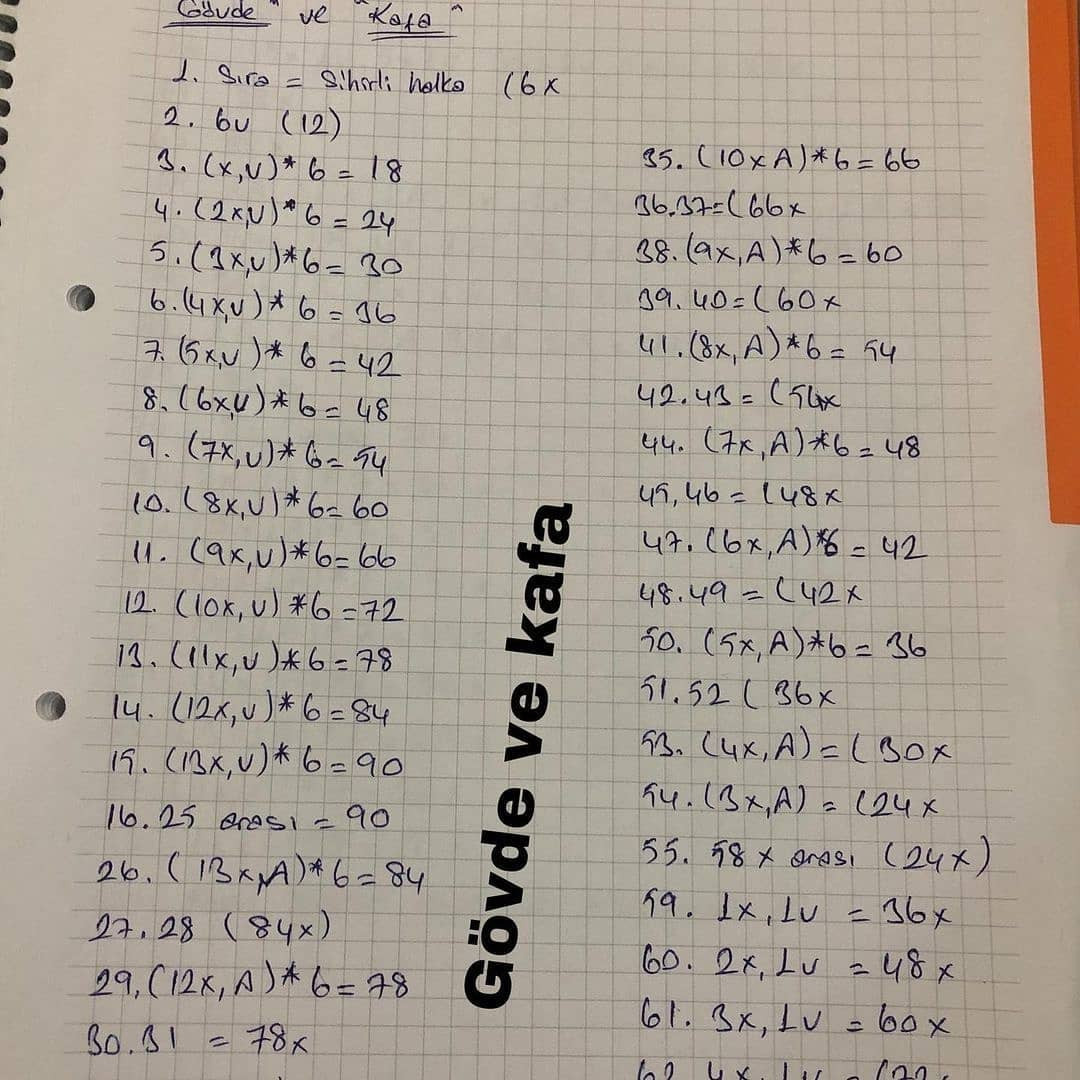 "Gövde" ve "Kafa"
1. Sıra = Sihirli halka (6x
2. 6v (12)
3. (x,v)* 6 = 18
4. (2x,v)* 6 = 24
5. (3x,v)*6= 30
6. (4x,v)* 6 = 36
7. (5x,v)* 6 = 42
8. (6x,v)*6= 48
9. (7x,v)*6= 54
10. (8x,v)*6= 60
11. (9x,v)*6=66
12. (10x,v)*6=72
13. (11x,v)*6=78
14. (12x,v)*6=84
15. (13x,v)*6=90
16.25 arası = 90
26. (13x,A)*6=84
27.28 (84x)
29. (12x,A)*6=78
30.31 = 78x
Gövde ve kafa
35. (10xA)*6=66
36.37=(66x
38. (9x,A)*6=60
39.40=(60x
41. (8x,A)*6= 54
42.43= (54x
44. (7x,A)*6=48
45,46= (48x
47. (6x,A)*6= 42
48.49 = (42x
50. (5x,A)*6= 36
51.52 ( 36x
53. (4x,A)=(30x
54. (3x,A) = (24x
55. 58x arası (24x)
59. 1x,1v = 36x
60. 2x,1v = 48x
61. 3x,1v = 60x